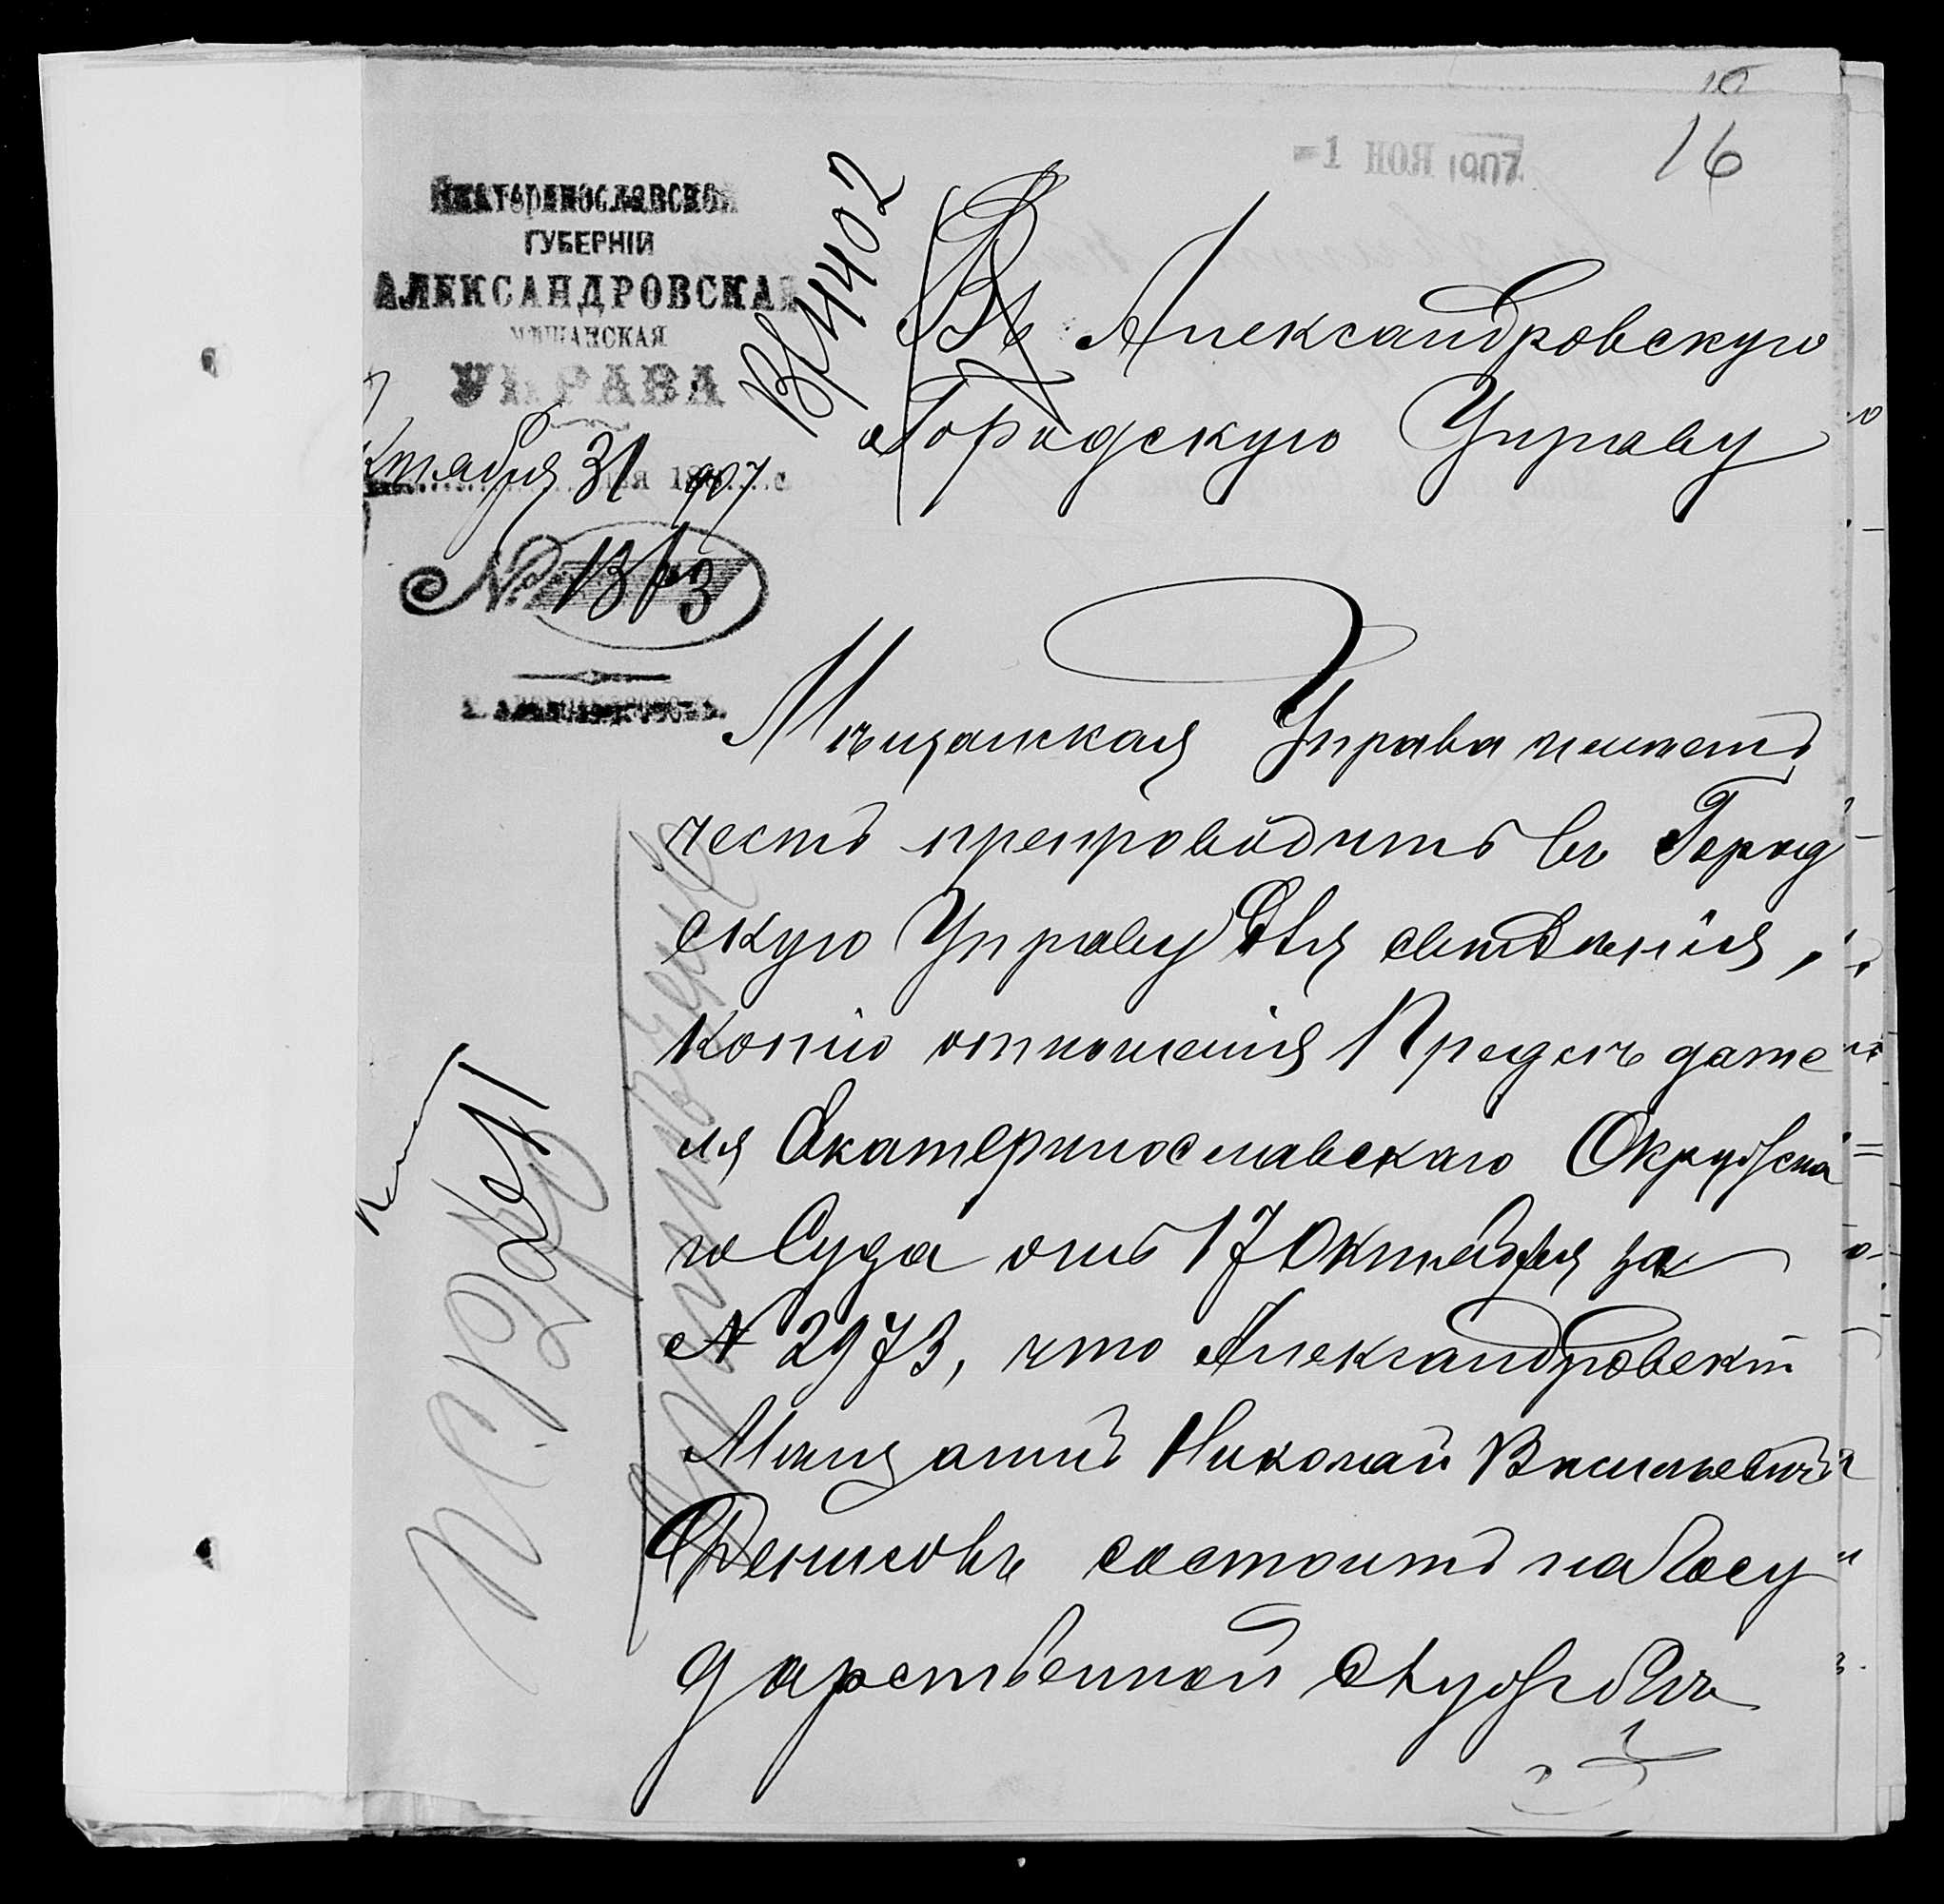 16
-1 НОЯ 1907
Екатеринославской
ГУБЕРНІИ
АЛЕКСАНДРОВСКАЯ
МѢЩАНСКАЯ
УПРАВА
Октября 31 дня 1907 г.
№
Г. АЛЕКСАНДРОВСКЪ.
Вх 4402
Въ Александровскую
Городскую Управу
Мѣщанская Управа имѣетъ
честь препроводить въ Город
скую Управу для свѣдѣнія,
копію отношенія Предсѣдате
ля Екатеринославскаго Окружна
го Суда отъ 17 Октября за
№ 2973, что Александровскій
Мѣщанинъ Николай Васильевичъ
Денисовъ состоитъ на Госу
дарственной службѣ